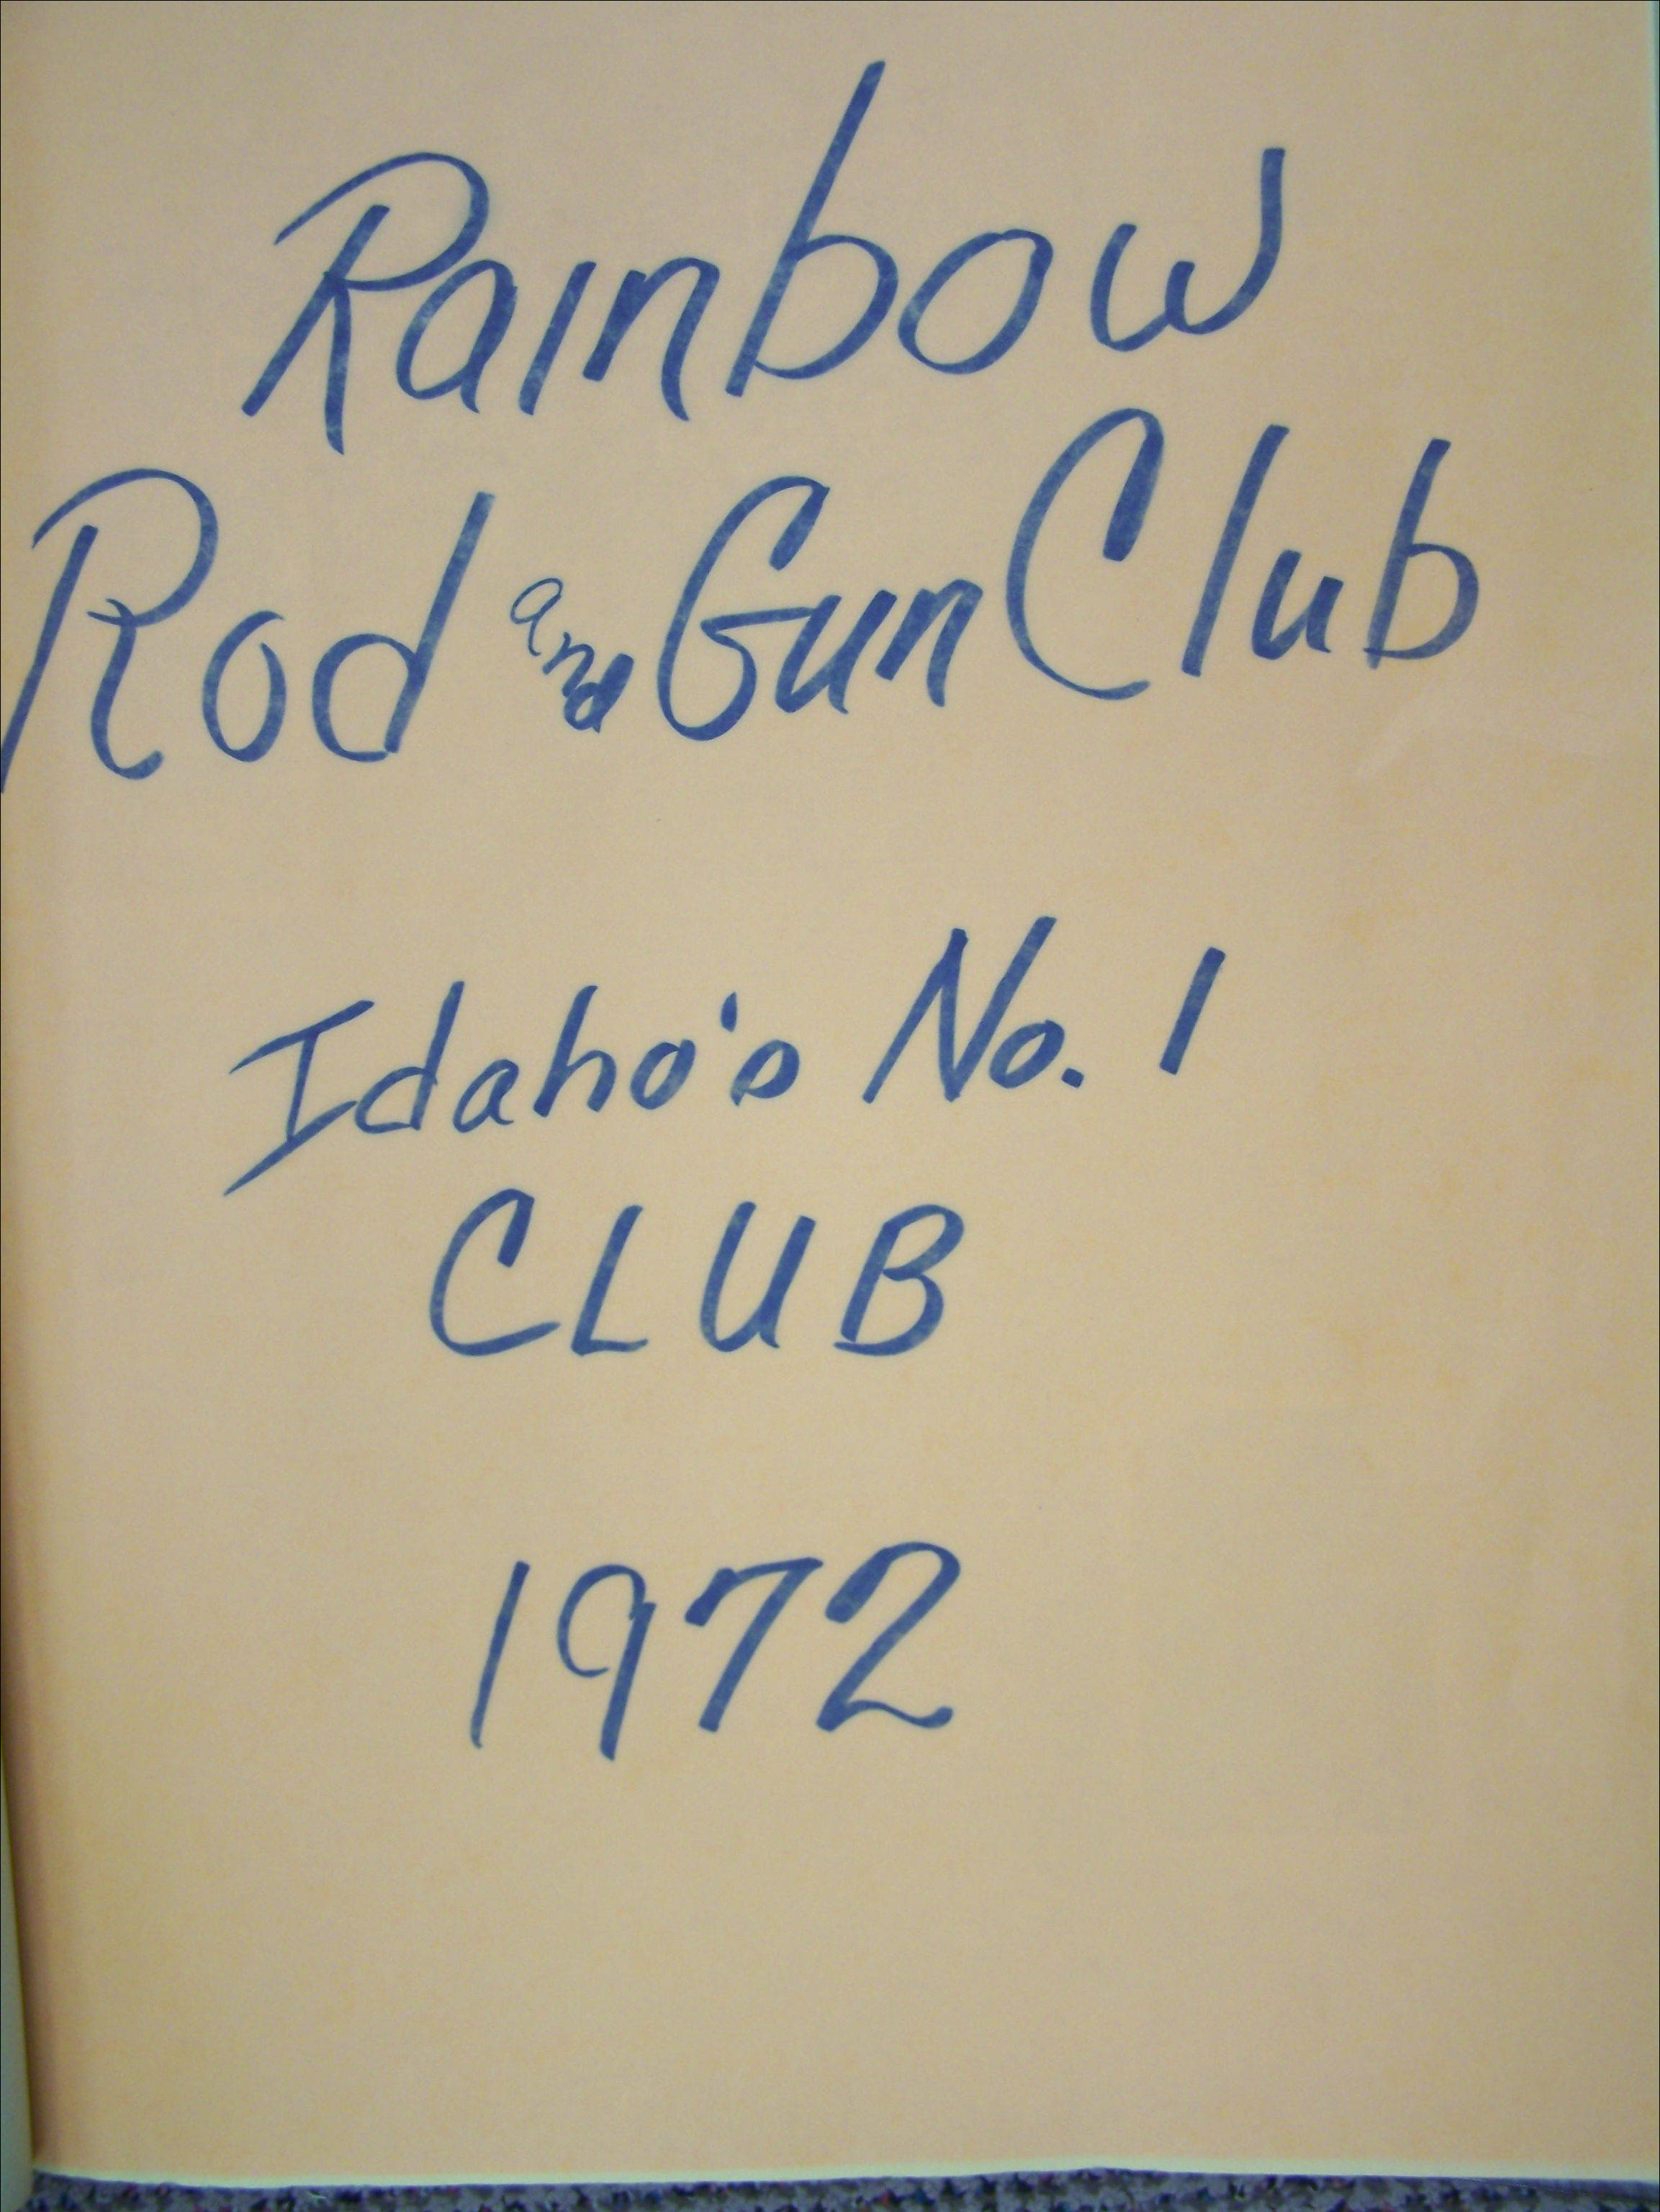 Rainbow
Rod and Gun Club
Idaho's No. 1
CLUB
1972